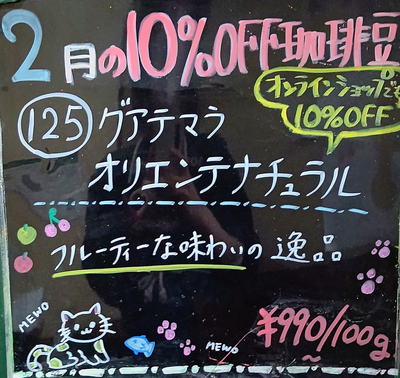 2月の10%OFF珈琲豆
オンラインショップでも
10%OFF
125 グアテマラ
オリエンテナチュラル
フルーティーな味わいの逸品
MEWO
MEWO
¥990/100g
~